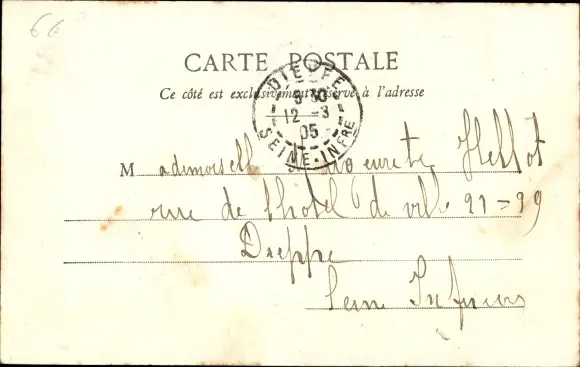 66
CARTE POSTALE
Ce côté est exclusivement réservé à l'adresse
DIEPPE
8 30
12 - 3
05
SEINE-INFRE
Mademoiselle Hellot
rue de l'hotel de ville 91=99
Dieppe
Seine Inferieure